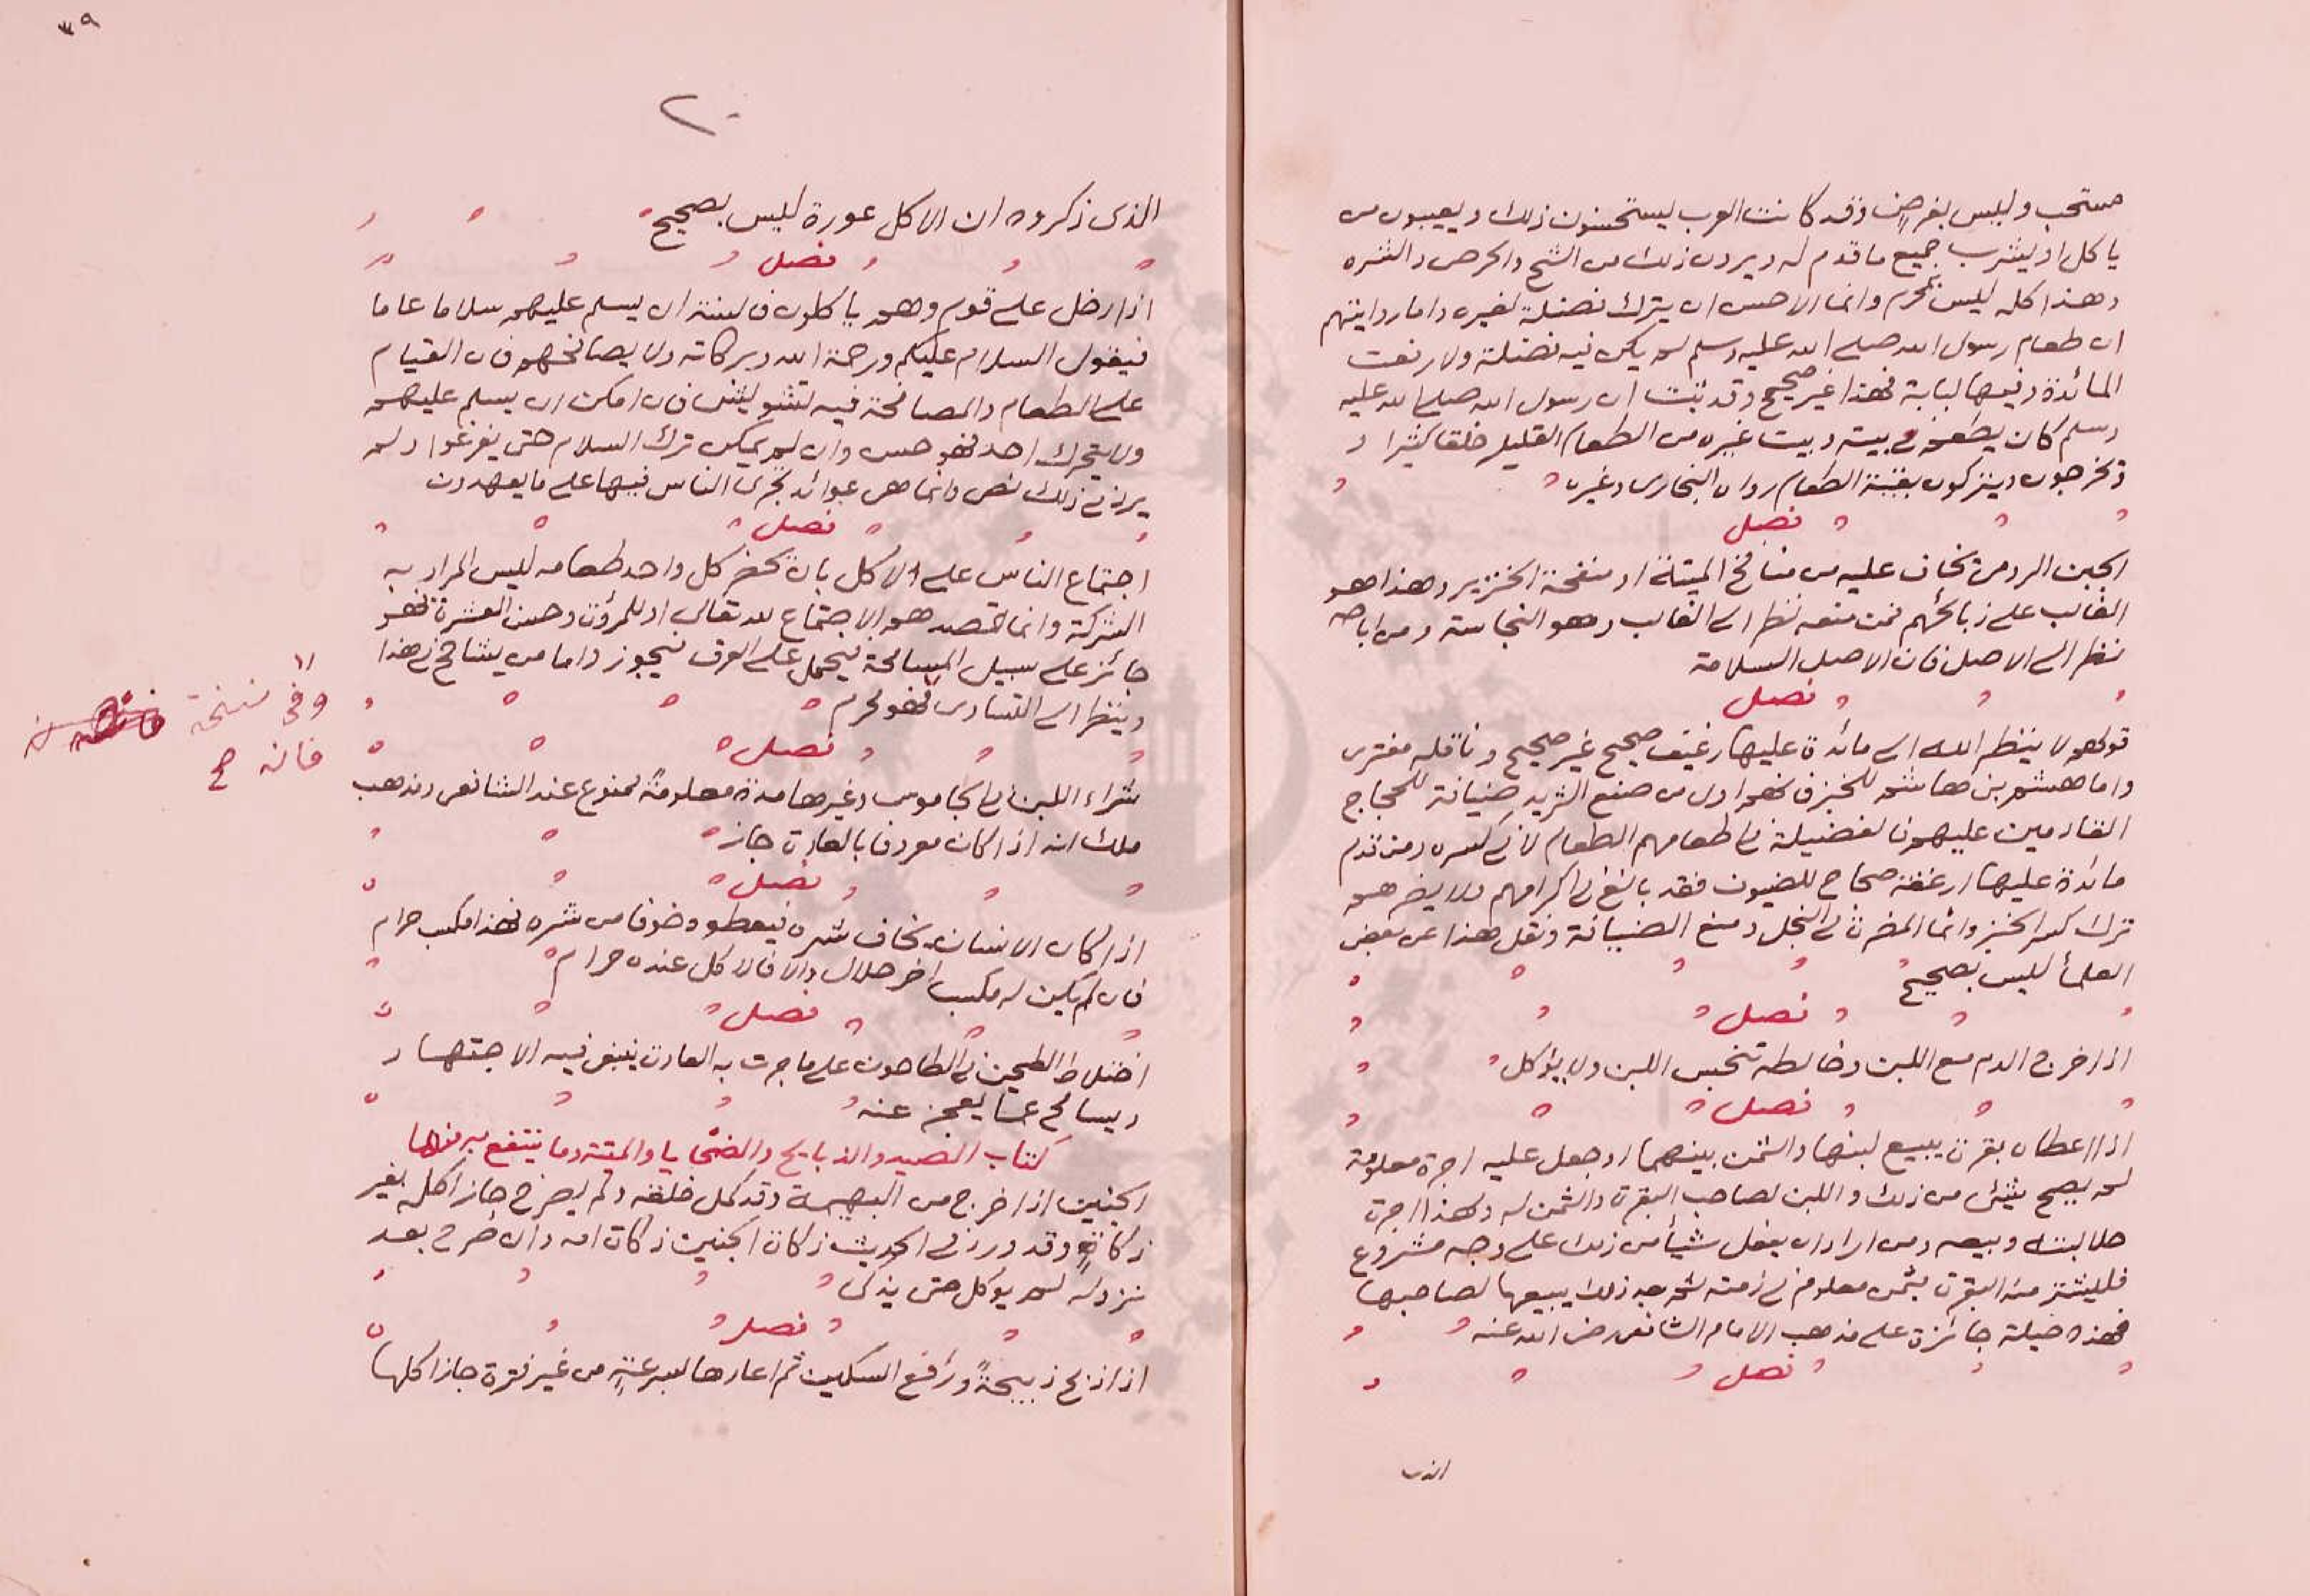 مستحب وليس بفرض وقد كانت العرب ليستحسنون ذلك ويعيبون من
ياكل او يشرب جميع ما قدم له ويرون ذلك من الشح والحرص والشره
وهذا كله ليس بمحرم وانما الاحسن ان يترك فضلة لغيره واما روايتهم
ان طعام رسول الله صلى الله عليه وسلم لم يكن فيه فضلة ولا رفعت
المائدة وفيها لبابة فهذا غير صحيح وقد ثبت ان رسول الله صلى الله عليه
وسلم كان يطعم في بيته وبيت غيره من الطعام القليل خلقا كثيرا و
وتخرجون ويتركون بقية الطعام رواه البخارى وغيره
فصل
الجبن الرومى تخاف عليه من منافخ الميتة او منفحة الخنزير وهذا هو
الغالب على ذبائحهم فمن منعه نظر الى الغالب وهو النجاسة ومن اباحه
نظر الى الاصل فان الاصل السلامة
فصل
قولهم لا ينظر الله الى مائدة عليها رغيف صحيح غير صحيح وناقله مفترى
واما هشم بن هاشم للخبز فهو اول من صنع الثريد ضيافة للحجاج
القادمين عليهم فالفضيلة في اطعامهم الطعام لا في كسره ومن قدم
مائدة عليها ارغفة صحاح للضيوف فقد بالغ في اكرامهم ولا يضرهم
ترك كسر الخبز وانما المضرة في البخل ومنع الضيافة ونقل هذا عن بعض
العلمأ ليس بصحيح
فصل
اذا خرج الدم مع اللبن وخالطه تنجس اللبن ولا يؤكل
فصل
اذا اعطاه بقرة يبيع لبنها والثمن بينهما او جعل عليه اجرة معلومة
لم يصح شئ من ذلك واللبن لصاحب البقرة والثمن له ولهذا اجرة
حلابته وبيعه ومن اراد ان يفعل شيأ من ذلك على وجه مشروع
فليشتر منه البقرة بثمن معلوم في ذمته ثم بعد ذلك يبيعها لصاحبها
فهذه حيلة جائزة على مذهب الامام الشافعى رضى الله عنه
فصل
الذى
٣٩
٢٠
الذى ذكروه ان الاكل عورة ليس بصحيح
فصل
اذا دخل على قوم وهم ياكلون فالسنة ان يسلم عليهم سلاما عاما
فيقول السلام عليكم ورحمة الله وبركاته ولا يصافحهم فان القيام
على الطعام والمصافحة فيه تشويش فان امكن ان يسلم عليهم
ولا يتحرك احد فهو حسن وان لم يمكن ترك السلام حتى يفرغوا ولم
يرد فى ذلك نص وانما هى عوائد تجرى الناس فيها على ما يعهدون
فصل
اجتماع الناس على الاكل بان يحضر كل واحد طعامه ليس المراد به
الشركة وانما القصد هو الاجتماع لله تعالى او للمروة وحسن العشرة فهو
جائز على سبيل المسامحة فيحمل على العرف فيجوز واما من يشاحح فى هذا
وينظر الى التساوى فهو محرم
وفى نسخة
فانه ح
فصل
شراء اللبن فى الجاموس وغيرها مدة معلومة ممنوع عند الشافعى ومذهب
ملك انه اذا كان معروفا بالعادة جاز
فصل
اذا كان الانسان يخاف شره فيعطوه خوفا من شره فهذا مكسب حرام
فان لم يكن له مكسب اخر حلال والا فالاكل عنده حرام
فصل
اختلاط الطحين فى الطاحون على ما جرت به العادة ينبغى فيه الاجتهاد
ويسامح عما يعجز عنه
كتاب الصيد والذبايح والضحايا والميتة وما ينتفع به منها
الجنين اذا خرج من البهيمة وقد كمل خلقه ولم يصرخ جاز اكله بغير
ذكاة وقد ورد فى الحديث ذكاة الجنين ذكاة امه وان صرح بعد
نزوله لم يؤكل حتى يذكى
فصل
اذا ذبح ذبيحة ورافع السكين ثم اعادها لسرعة من غير فترة جاز اكلها